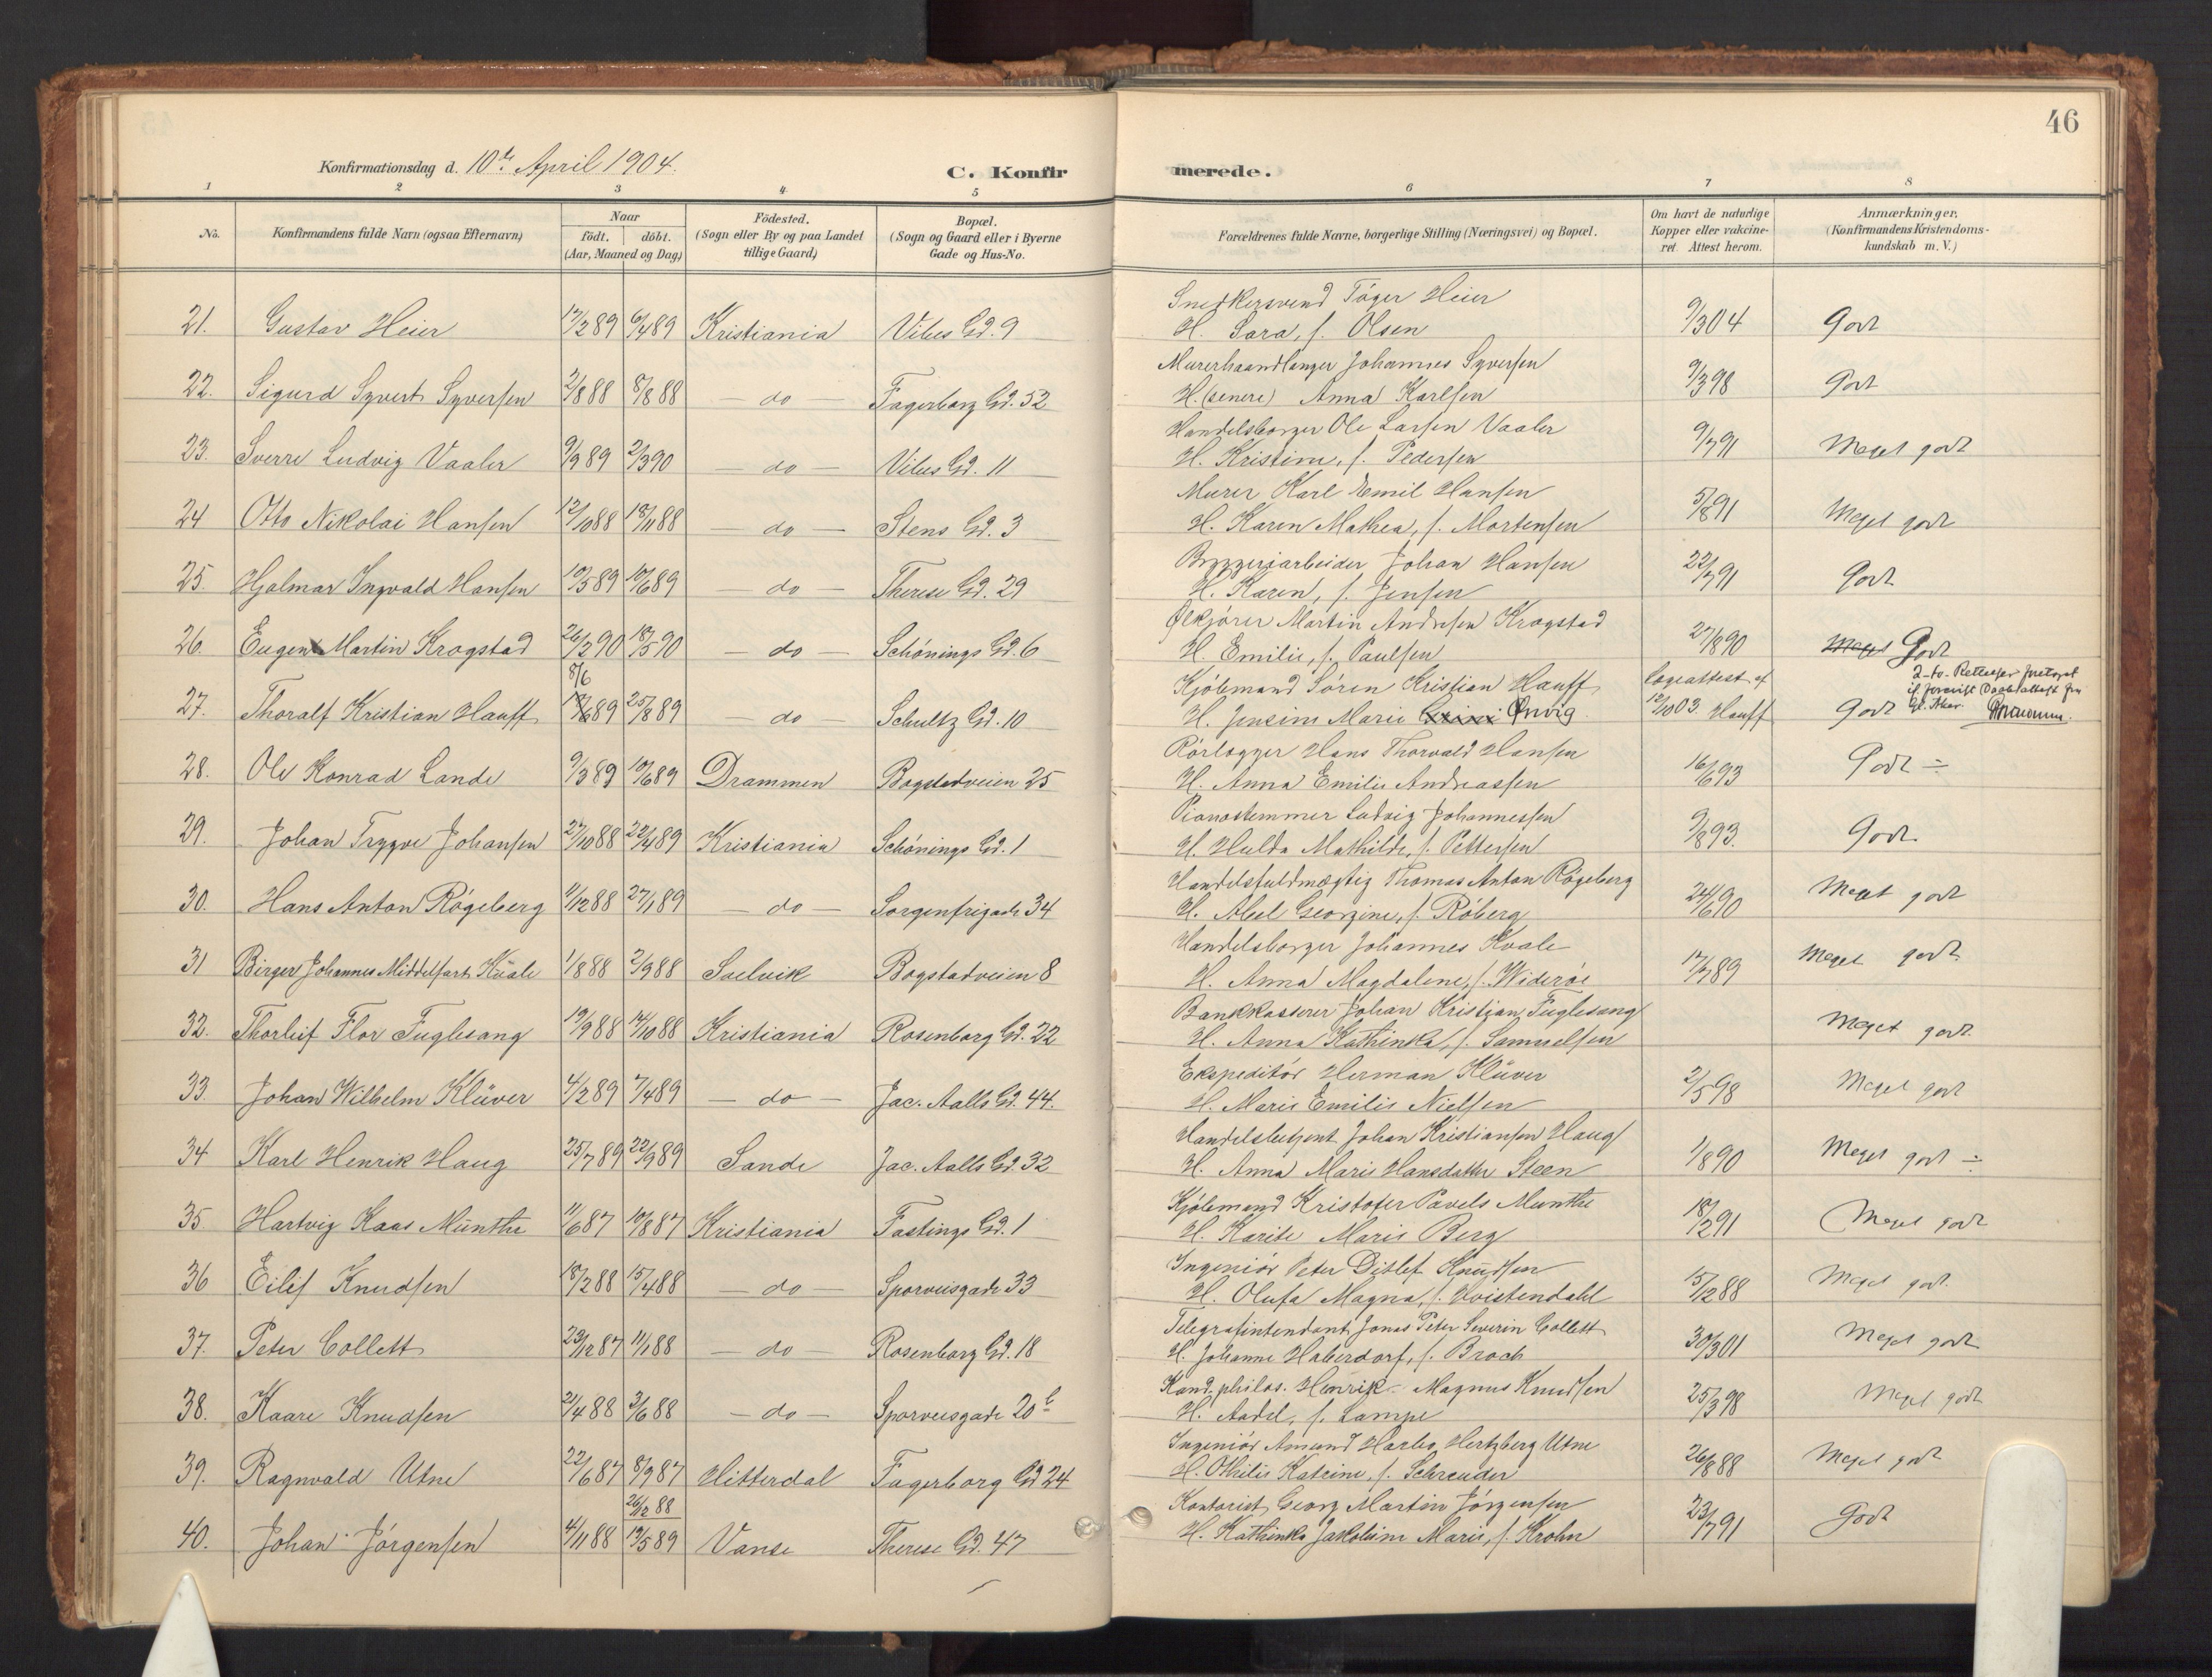 46
Konfirmationsdag d. 10de April 1904.
C. Konfirmerede.
1 2 3 4 5 6 7 8
No.
Konfirmandens fulde Navn (ogsaa Efternavn)
Naar
födt. döbt.
(Aar, Maaned og Dag)
Födested.
(Sogn eller By og paa Landet
tillige Gaard)
Bopæl.
(Sogn og Gaard eller i Byerne
Gade og Hus-No.
Forældrenes fulde Navne, borgerlige Stilling (Næringsvei) og Bopæl.
Om havt de naturlige
Kopper eller vakcine-
ret. Attest herom.
Anmærkninger.
(Konfirmandens Kristendoms-
kundskab m. V.)
Snedkersvend Töger Heier
21. Gustav Heier 17/2 89 6/4 89 Kristiania Vibes Gd. 9 H. Sara, f. Olsen 9/3 04 Godt
Murerhaandlanger Johannes Syversen
22. Sigurd Syvert Syversen 2/8 88 8/8 88 — do — Fagerborg Gd. 52 H. (senere) Anna Karlsen 9/3 98 Godt
Handelsborger Ole Larsen Vaaler
23. Sverre Ludvig Vaaler 9/9 89 2/3 90 — do — Vibes Gd. 11 H. Kristine, f. Pedersen 9/7 91 Meget godt
Murer Karl Emil Hansen
24 Otto Nikolai Hansen 12/10 88 18/11 88 — do — Stens Gd. 3 H. Karen Mathea, f. Mortensen 5/8 91 Meget godt
Bryggeriarbeider Johan Hansen
25. Hjalmar Ingvald Hansen 10/5 89 10/6 89 — do — Therese Gd. 29 H. Karen, f. Jensen 22/7 91 Godt
Ølkjörer Martin Andresen Krogstad
26. Eugen Martin Krogstad 26/2 90 18/5 90 — do — Schönings Gd. 6 H. Emilie, f. Paulsen 27/8 90 Meget Godt
8/6 Kjöbmand Sören Kristian Hauff Lægeattest af 2-to Rettelser foretaget
27. Thoralf Kristian Hauff 17/6 89 25/8 89 do Schultz Gd. 10 H. Jensine Marie Ørvig. 12/10 03. Hauff Godt
Rörlægger Hans Thorvald Hansen
28. Ole Konrad Lande 9/3 89 10/6 89 Drammen Bogstadveien 25 H. Anna Emilie Andreassen 16/6 93 Godt ÷
Pianostemmer Ludvig Johannessen
29. Johan Trygve Johansen 27/10 88 22/4 89 Kristiania Schönings Gd. 1 H. Hulda Mathilde, f. Pettersen 9/8 93. Godt
Handelsfuldmægtig Thomas Anton Rögeberg
30. Hans Anton Rögeberg 9/12 88 27/1 89 — do — Sorgenfrigade 34 H. Abel Georgine, f. Röberg 24/6 90 Meget godt
Handelsborger Johannes Kvale
31 Birger Johannes Middelfart Kvale 1/8 88 2/9 88 Saelvik Bogstadveien 8 H. Anna Magdalene, f. Wideröe 17/7 89 Meget godt.
Bankkasserer Johan Kristian Fuglesang
32. Thorleif Flor Fuglesang 19/9 88 14/10 88 Kristiania Rosenborg Gd. 22 H. Anna Kathinka, f. Samuelsen Meget godt.
Ekspeditör Herman Klüver
33. Johan Wilhelm Klüver 4/2 89 7/4 89 — do — Jac. Aalls Gd. 44. H. Marie Emilie Nielsen 2/5 98 Meget godt
Handelsbetjent Johan Kristiansen Haug
34 Karl Henrik Haug 25/7 89 22/9 89 Sande Jac. Aalls Gd. 32 H. Anna Marie Hansdatter Steen 1/8 90 Meget godt ÷
Kjöbmand Kristofer Pavels Munthe
35. Hartvig Kaas Munthe 11/6 87 10/8 87 Kristiania Fastings Gd. 1 H. Karite Marie Berg 18/2 91 Meget godt
Ingeniör Peter Ditlef Knudsen
36 Eilif Knudsen 18/2 88 15/4 88 — do — Sporveisgade 33 H. Olufa Magna, f. Hvistendahl 15/12 88 Meget godt.
Telegrafintendant Jonas Peter Severin Collett
37. Peter Collett 23/12 87 11/1 88 — do — Rosenborg Gd. 18 H. Johanne Haberdorf, f. Broch 30/3 01 Meget godt
Kand. philos. Henrik Magnus Knudsen
38. Kaare Knudsen 21/4 88 3/6 88 — do — Sporveisgade 20 b H. Aadel, f. Lampe 25/3 98 Meget godt
Ingeniör Amund Harbo Hertzberg Utne
39. Ragnvald Utne 22/6 87 8/9 87 Hitterdal Fagerborg Gd 24 H. Othilie Katrine, f. Schreuder 26/8 88 Meget godt
26/12 88 Kontorist Georg Martin Jörgensen
40. Johan Jörgensen 4/11 88 19/5 89 Vanse Therese Gd. 47 H. Kathinka Jakobine Marie, f. Krohn 23/7 91 Godt